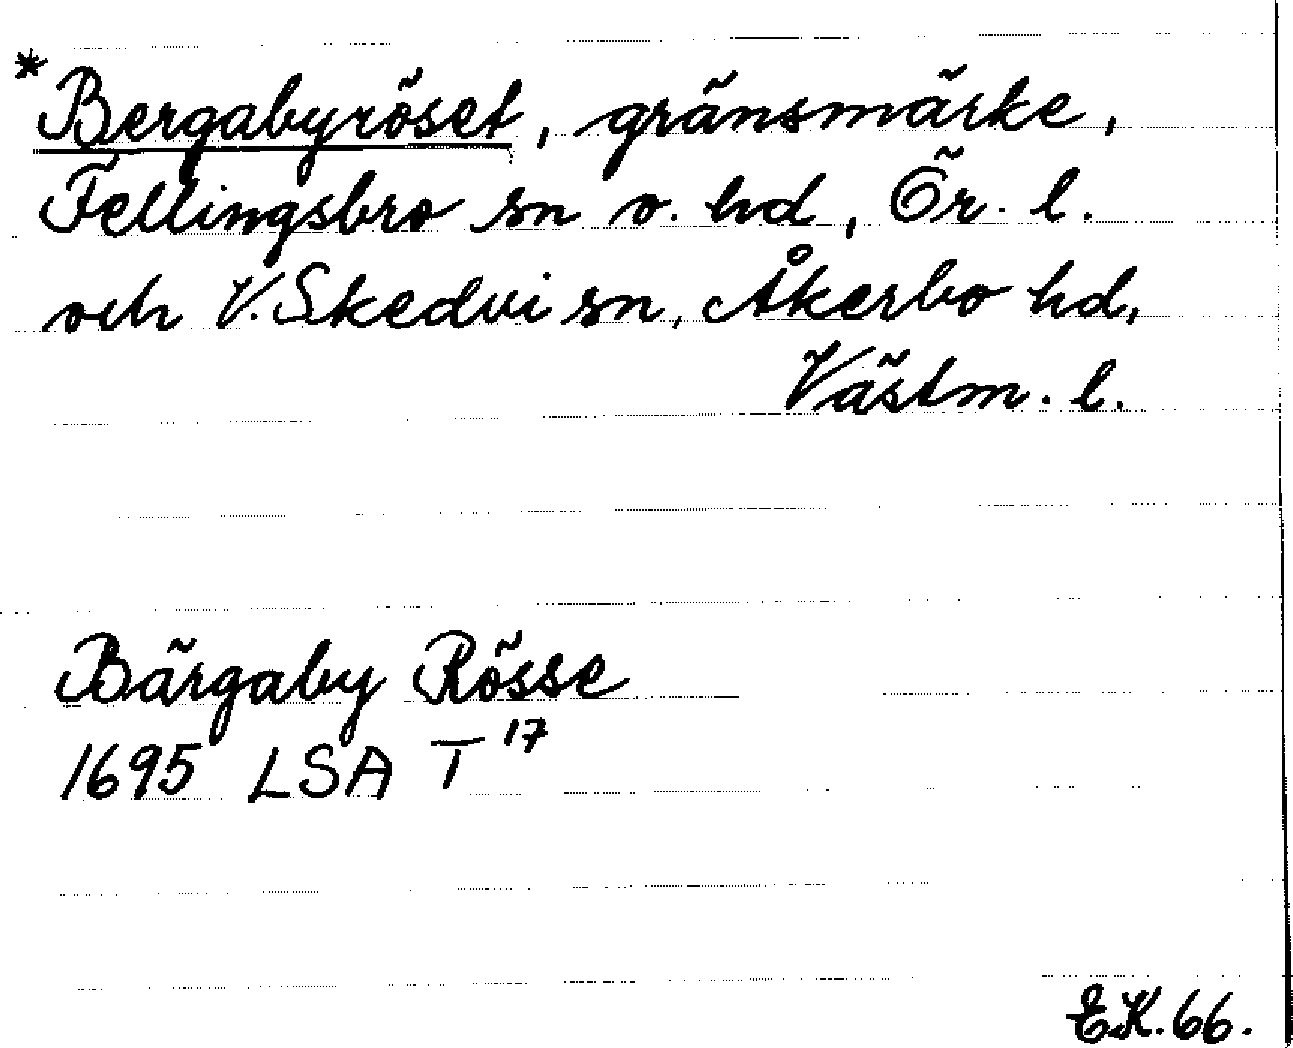 *Bergabyröset, gränsmärke,
Fellingsbro sn o. hd, Ör. l.
och V. Skedvi sn, Åkerbo hd,
Västm. l.
Bärgaby Rösse
1695 LSA T 17
E.K. 66.